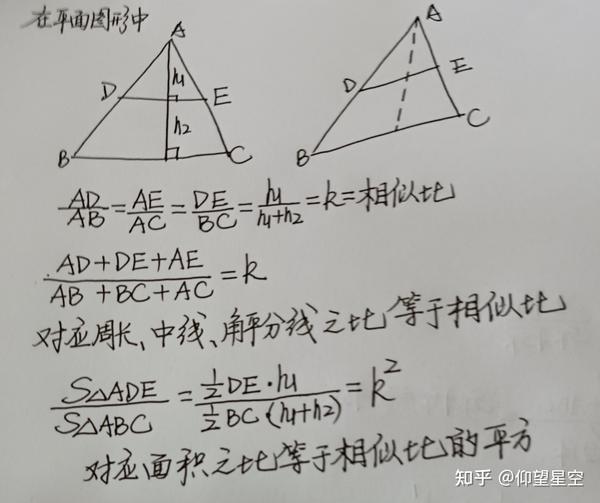 在平面图形中
A
A
h1
D
E
D
E
h2
C
B
C
B
AD/AB=AE/AC=DE/BC=h1/(h1+h2)=k=相似比
(AD+DE+AE)/(AB+BC+AC)=k
对应周长、中线、角平分线之比等于相似比
S△ADE/S△ABC=(1/2 DE·h1)/(1/2 BC(h1+h2))=k²
对应面积之比等于相似比的平方
知乎 @仰望星空